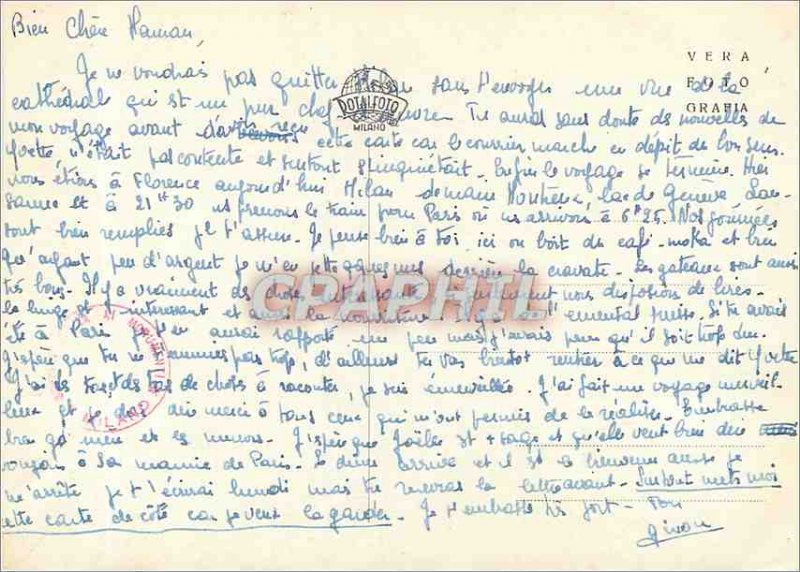 Bien Chère Maman,
VERA
FOTO
GRAFIA
ROTALFOTO
MILANO
Je ne voudrais pas quitter sans t'envoyer une vue de la
cathédrale qui est un pur chef Tu auras sans doute des nouvelles de
mon voyage avant d'avoir reçu cette carte car le courrier marche en dépit du bon sens.
Yvette n'était pas contente et surtout s'inquiétait. Enfin le voyage se termine. Hier
nous étions à Florence aujourd'hui Milan demain Montreux, lac de Genève, Lau-
sanne et à 21H30 ns prenons le train pour Paris où ns arrivons à 6H25. Nos journées
sont bien remplies je t'assure. Je pense bien à toi, ici on boit du café-moka et bien
qu'ayant peu d'argent je m'en jette qques uns derrière la cravate. Les gateaux sont aussi
très bons. Il y a vraiment des choses nous disposons de lires.
le linge est intéressant et aussi la l'emental suisse. Si tu avais
été à Paris je t'en aurais rapporté un peu mais j'avais peur qu'il soit trop dur.
J'espère que tu ne t'ennuies pas trop, d'ailleurs tu vas bientot rentrer à ce que me dit Yvette
J'ai des tas, des tas de choses à raconter, je suis émerveillée. J'ai fait un voyage merveil-
leux et je dois dire merci à tous ceux qui m'ont permis de le réaliser. Embrasse
bien et les J'espère que Joëlle est + sage et qu'elle veut bien dire
à sa mamie de Paris. Le diner arrive et il est le bienvenu aussi je
m'arrête je t'écrirai lundi mais tu recevras la lettre avant. Surtout mets moi
cette carte de côté car je veux la garder. Je t'embrasse très fort - Ton
CPAPHIL
MILANO